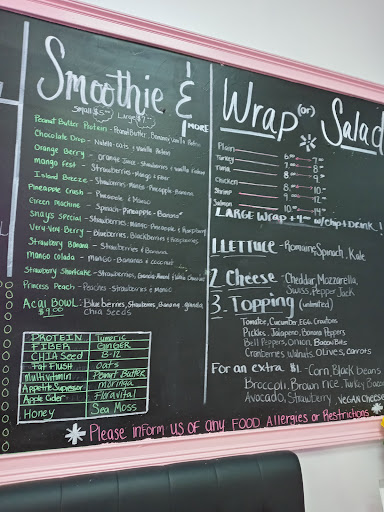 Smoothie &
Small $5.00 Large $7.00
1 MORE
Peanut Butter Protein - Peanut Butter, Banana, Vanilla Protein
Chocolate Drop - Nutella - Oats & Vanilla Protein
Orange Berry - Orange Juice - Strawberries & Vanilla Protein
Mango Fest - Strawberries - Mango & Pear
Island Breeze - Strawberries - Mango - Pineapple - Banana
Pineapple Crush - Pineapple & Mango
Green Machine - Spinach - Pineapple - Banana
Shays Special - Strawberries - Mango - Pineapple & Raspberry
Very-Very-Berry - Blueberries, Blackberries & Raspberries
Strawberry Banana - Strawberries & Banana
Mango Colada - Mango - Bananas & Coconut
Strawberry Shortcake - Strawberries, Granola, Almond & Vanilla
Princess Peach - Peaches - Strawberries & Mango
Acai Bowl: Blueberries, Strawberries, Banana, granola,
$9.00 Chia Seeds
PROTEIN Tumeric
FIBER GINGER
CHIA Seed B-12
Fat Flush Oats
Multivitamin Peanut Butter
Appetite Supressor moringa
Apple Cider Floravital
Honey Sea Moss
Wrap (or) Salad
Plain
Turkey 6.00 7.00
Tuna 8. 9.
Chicken 8. 10.
Shrimp 9. 12.
Salmon 10. 14.
LARGE Wrap + w/chip + Drink!
1. LETTUCE - Romaine, Spinach, Kale
2. Cheese - Cheddar, Mozzarella,
Swiss, Pepper Jack
3. Topping (unlimited)
Tomatoe, Cucumber, EGG, Croutons
Pickles, Jalapeno, Banana Peppers
Bell Peppers, Onion, Bacon Bits
Cranberries, walnuts, Olives, Carrots
For an extra $1 - Corn, Black beans
Broccoli, Brown rice, Turkey Bacon
Avocado, Strawberry, VEGAN Cheese
* Please inform us of any FOOD Allergies or Restrictions *